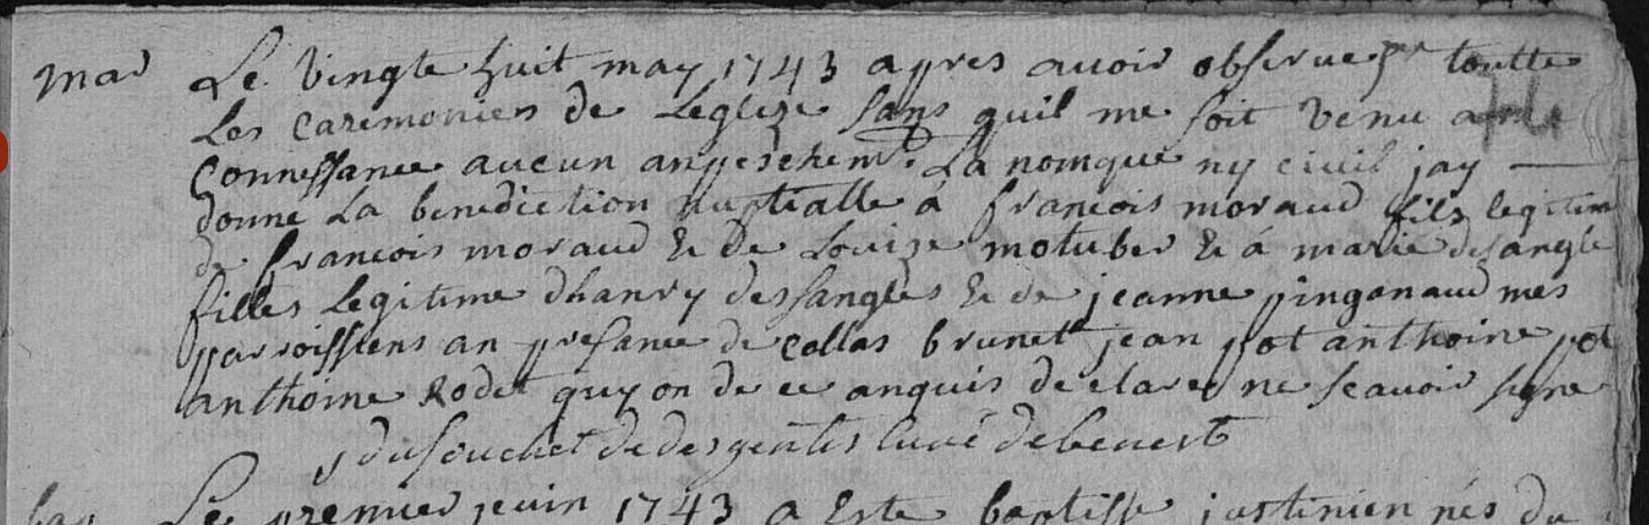 mar Le vingte huit may 1743 apres auoir obserue toutte
Les caremonies de Leglize sans quil me soit venu a ma
Connessance aucun anpeschemt. La nomque ny ciuil jay
donné La benediction nuptialle á francois moraud fils legitim
de francois moraud & de Louize motuber & á marie desangle
filles Legitime dhanry dessangles & de jeanne pinganaud mes
parroissiens an presance de collas brunet jean pot anthoine pot
anthoine Rodet quy on de ce anquis declarer ne scauoir signe
dusouchet de desgentes curé de benest
Le premier juin 1743 a Este baptisse justinien nés du